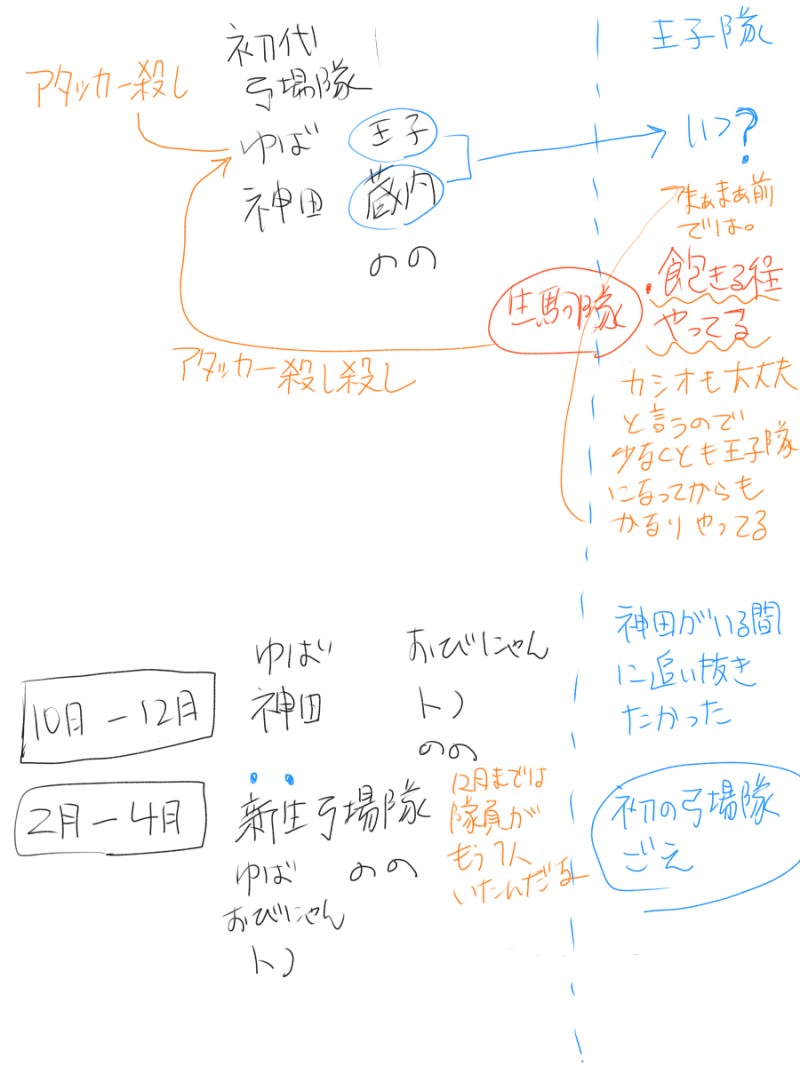 初代
弓場隊
アタッカー殺し
ゆば 王子
神田 蔵内
のの
王子隊
いつ?
まぁまぁ前
では。
生駒隊
・飽きる程
やってる
アタッカー殺し殺し
カシオも大丈夫
と言うので
少なくとも王子隊
になってからも
かなりやってる
ゆば おびにゃん
10月-12月
神田 トノ
のの
神田がいる間
に追い抜き
たかった
2月-4月
新生弓場隊
ゆば のの
おびにゃん
トノ
12月までは
隊員が
もう1人
いたんだよね
初の弓場隊
ごえ